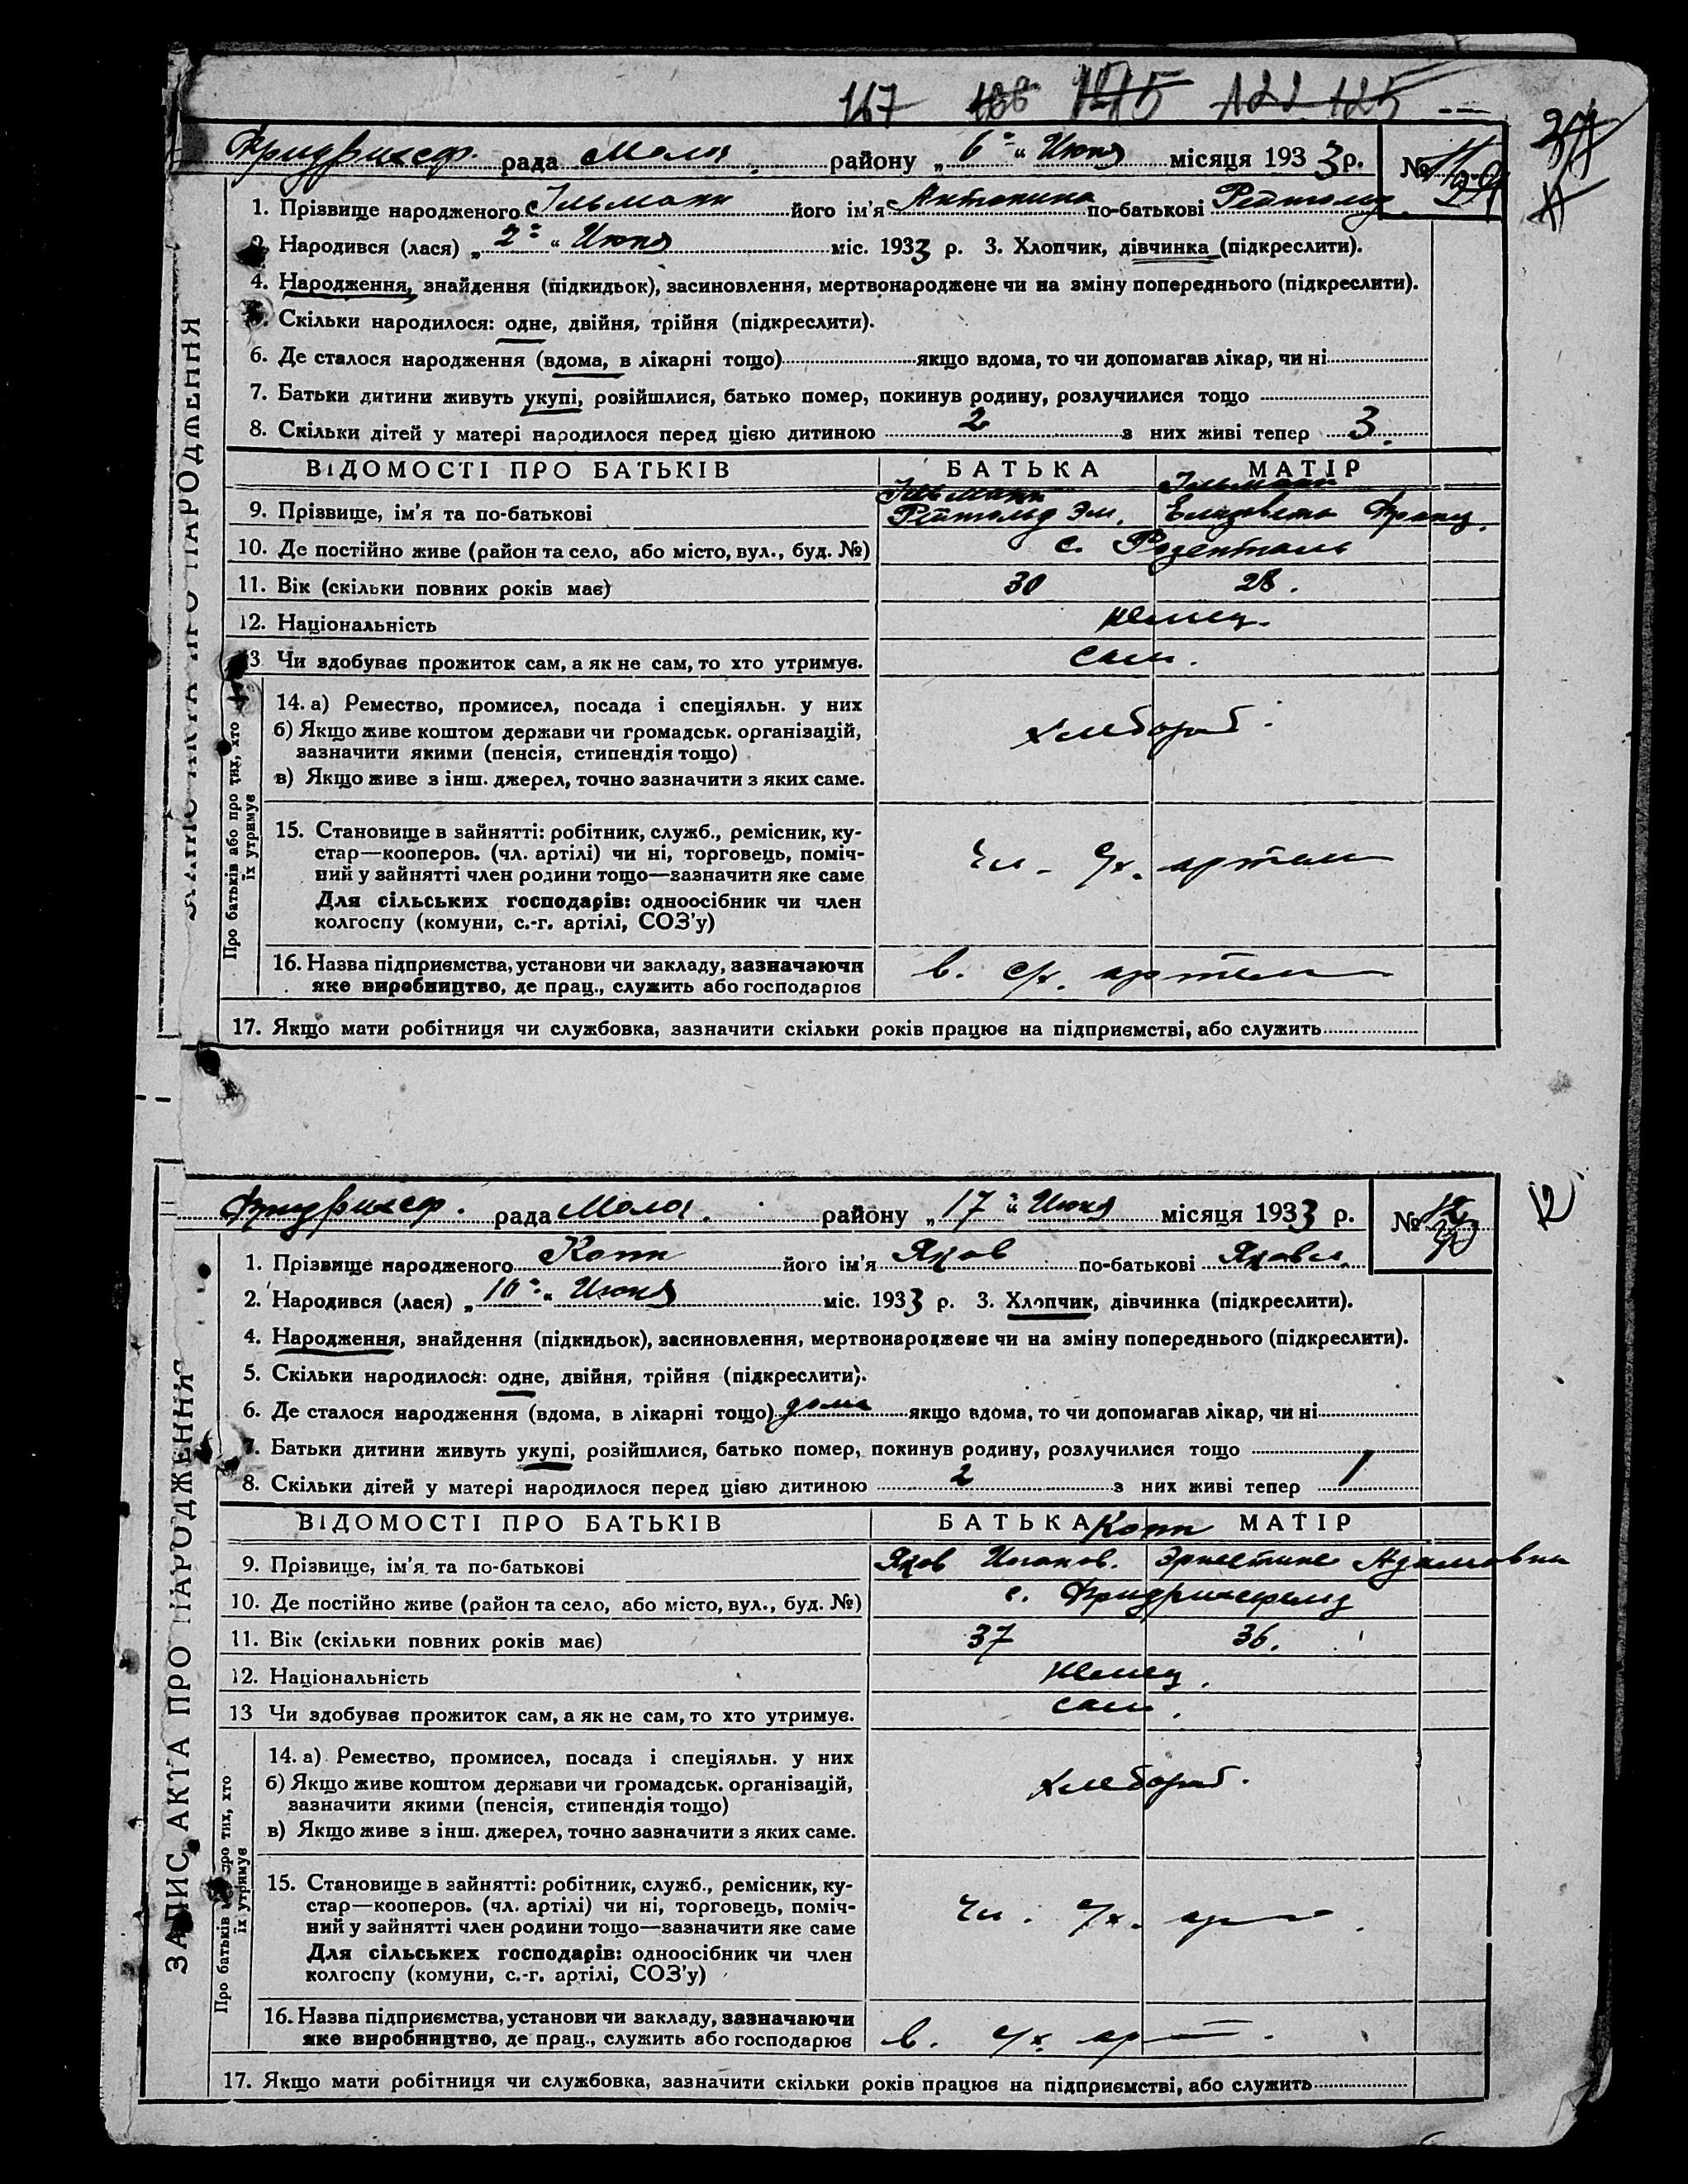 167 168 1215 122 125
27
Фридрихсф. рада Моло. району „6“ Июня місяця 1933 р. № 11
11
1. Прізвище народженого Гильманн його ім'я Антонина по-батькові Рейнгольд.
2. Народився (лася) „2“ Июня міс. 1933 р. 3. Хлопчик, дівчинка (підкреслити).
4. Народження, знайдення (підкидьок), засиновлення, мертвонароджене чи на зміну попереднього (підкреслити).
5. Скільки народилося: одне, двійня, трійня (підкреслити).
6. Де сталося народження (вдома, в лікарні тощо) якщо вдома, то чи допомагав лікар, чи ні
7. Батьки дитини живуть укупі, розійшлися, батько помер, покинув родину, розлучилися тощо
8. Скільки дітей у матері народилося перед цією дитиною 2 з них живі тепер 3.
ВІДОМОСТІ ПРО БАТЬКІВ БАТЬКА МАТІР
9. Прізвище, ім'я та по-батькові
10. Де постійно живе (район та село, або місто, вул., буд. №) с. Розенталь
11. Вік (скільки повних років має) 30 28.
12. Національність немец.
13 Чи здобував прожиток сам, а як не сам, то хто утримує. сам.
14. а) Ремество, промисел, посада і спеціяльн. у них
б) Якщо живе коштом держави чи громадськ. організацій,
зазначити якими (пенсія, стипендія тощо) хлебороб.
в) Якщо живе з інш. джерел, точно зазначити з яких саме.
15. Становище в зайнятті: робітник, служб., ремісник, ку-
стар—кооперов. (чл. артілі) чи ні, торговець, поміч- чл. с/х. артели
ний у зайнятті член родини тощо—зазначити яке саме
Для сільських господарів: одноосібник чи член
колгоспу (комуни, с.-г. артілі, СОЗ'у)
16. Назва підприємства, установи чи закладу, зазначаючи
яке виробництво, де прац., служить або господарює в. с/х. артели
17. Якщо мати робітниця чи службовка, зазначити скільки років працює на підприємстві, або служить
ЗАПИС АКТА ПРО НАРОДЖЕННЯ
Про батьків або про тих, хто
їх утримує
Фридрихсф. рада Моло. району „17“ Июня місяця 1933 р. № 12
12
1. Прізвище народженого Копп його ім'я Яков по-батькові Яковл.
2. Народився (лася) „16“ Июня міс. 1933 р. 3. Хлопчик, дівчинка (підкреслити).
4. Народження, знайдення (підкидьок), засиновлення, мертвонароджене чи на зміну попереднього (підкреслити).
5. Скільки народилося: одне, двійня, трійня (підкреслити).
6. Де сталося народження (вдома, в лікарні тощо) дома якщо вдома, то чи допомагав лікар, чи ні
7. Батьки дитини живуть укупі, розійшлися, батько помер, покинув родину, розлучилися тощо
8. Скільки дітей у матері народилося перед цією дитиною 2 з них живі тепер 1
ВІДОМОСТІ ПРО БАТЬКІВ БАТЬКА Копп МАТІР
9. Прізвище, ім'я та по-батькові Яков Иоганов. Эрнестине Адамовна
10. Де постійно живе (район та село, або місто, вул., буд. №) с. Фридрихсфельд
11. Вік (скільки повних років має) 37 36.
12. Національність немец.
13 Чи здобував прожиток сам, а як не сам, то хто утримує. сам.
14. а) Ремество, промисел, посада і спеціяльн. у них
б) Якщо живе коштом держави чи громадськ. організацій, хлебороб.
зазначити якими (пенсія, стипендія тощо)
в) Якщо живе з інш. джерел, точно зазначити з яких саме.
15. Становище в зайнятті: робітник, служб., ремісник, ку-
стар—кооперов. (чл. артілі) чи ні, торговець, поміч- чл. с/х. арт
ний у зайнятті член родини тощо—зазначити яке саме
Для сільських господарів: одноосібник чи член
колгоспу (комуни, с.-г. артілі, СОЗ'у)
16. Назва підприємства, установи чи закладу, зазначаючи
яке виробництво, де прац., служить або господарює в. с/х. арт.
17. Якщо мати робітниця чи службовка, зазначити скільки років працює на підприємстві, або служить
ЗАПИС АКТА ПРО НАРОДЖЕННЯ
Про батьків або про тих, хто
їх утримує